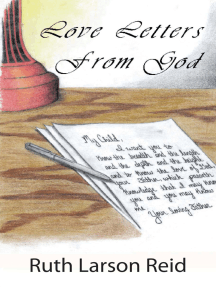 Love Letters
From God
My Child,
I want you to
know the breadth and the length
and the depth and the height
and to know the love of
your Father which passeth
knowledge that I may
you and you may
me
Your loving Father
Ruth Larson Reid